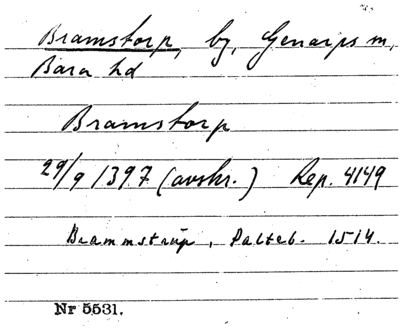 Bramstorp, by, Genarps sn,
Bara hd
Bramstorp
29/9 1397 (avskr.) Rep. 4149
Brammstrup, Palteb. 1514.
Nr 5531.